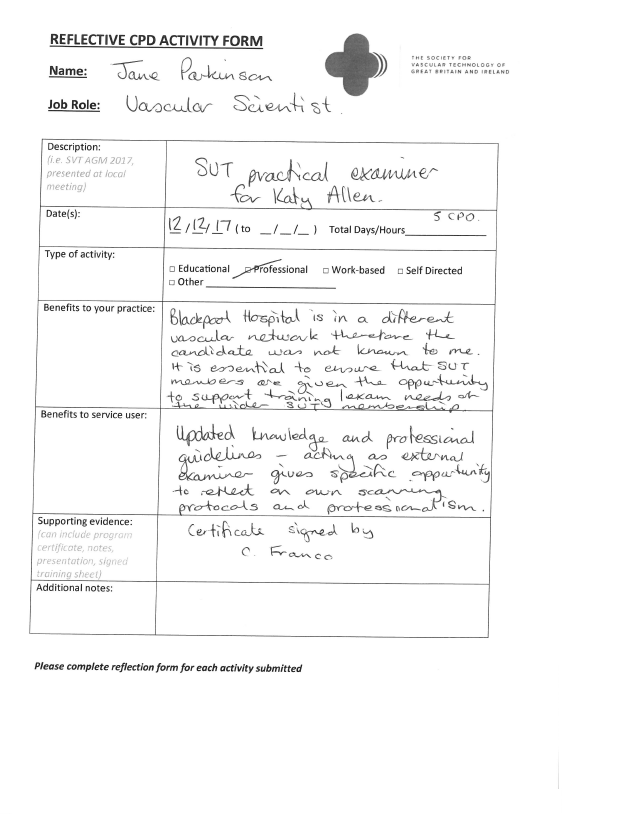 REFLECTIVE CPD ACTIVITY FORM
THE SOCIETY FOR
VASCULAR TECHNOLOGY OF
GREAT BRITAIN AND IRELAND
Name: Jane Parkinson
Job Role: Vascular Scientist.
Description:
(i.e. SVT AGM 2017,
presented at local
meeting)
SVT practical examiner
for Katy Allen.
Date(s):
12/12/17 ( to __/__/__ ) Total Days/Hours 5 CPD.
Type of activity:
□ Educational □ Professional □ Work-based □ Self Directed
□ Other
Benefits to your practice:
Blackpool Hospital is in a different
vascular network therefore the
candidate was not known to me.
It is essential to ensure that SVT
members are given the opportunity
to support training /exam needs of
the wider SVT membership.
Benefits to service user:
Updated knowledge and professional
guidelines – acting as external
examiner gives specific opportunity
to reflect on own scanning
protocols and professionalism.
Supporting evidence:
(can include program
certificate, notes,
presentation, signed
training sheet)
Certificate signed by
C. Franco
Additional notes:
Please complete reflection form for each activity submitted